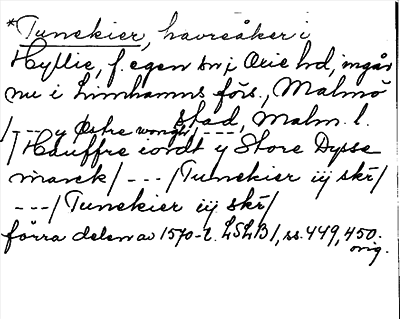 *Tunekier, havreåker i
Hyllie, f. egen sn i Oxie hd, ingår
nu i Limhamns förs., Malmö
stad, Malm. l.
/--- y Østre wongh /---/
/Hauffre iordt y Store Dysse
marck/ --- /Tunekier iij skr/
---/ Tunekier iij skr/
förra delen av 1570-t. LSLB 1, ss. 449, 450.
orig.